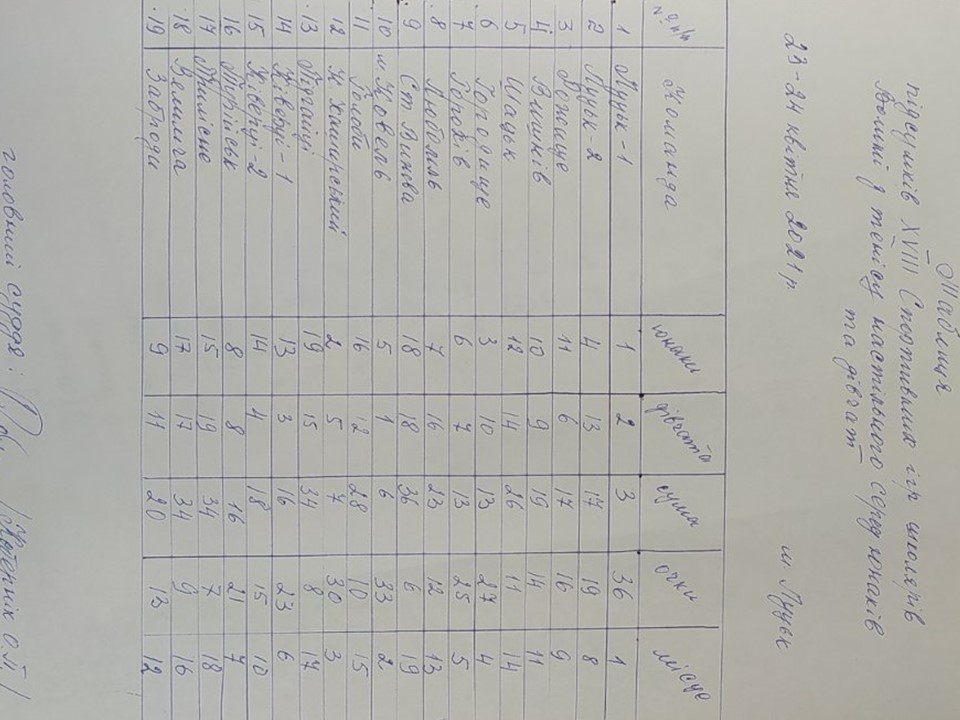 Таблиця
підсумків XVIII Спортивних ігр школярів
Волині з тенісу настільного серед юнаків
та дівчат
23-24 квітня 2021р. м Луцьк
№ п/п Команда юнаки дівчата сума очки місце
1 Луцьк-1 1 2 3 36 1
2 Луцьк-2 4 13 17 19 8
3 Рожище 11 6 17 16 9
4 Вишнів 10 9 19 14 11
5 Шацьк 12 14 26 11 14
6 Городище 3 10 13 27 4
7 Горохів 6 7 13 25 5
8 Любомль 7 16 23 12 13
9 Ст Вижва 18 18 36 6 19
10 м Ковель 5 1 6 33 2
11 Голоби 16 12 28 10 15
12 К. Каширський 2 5 7 30 3
13 Підгайці 19 15 34 8 17
14 Ківерці-1 13 3 16 23 6
15 Ківерці-2 14 4 18 15 10
16 Турійськ 8 8 16 21 7
17 15 19 34 7 18
18 Велимча 17 17 34 9 16
19 Заброди 9 11 20 13 12
головний суддя: О.П./